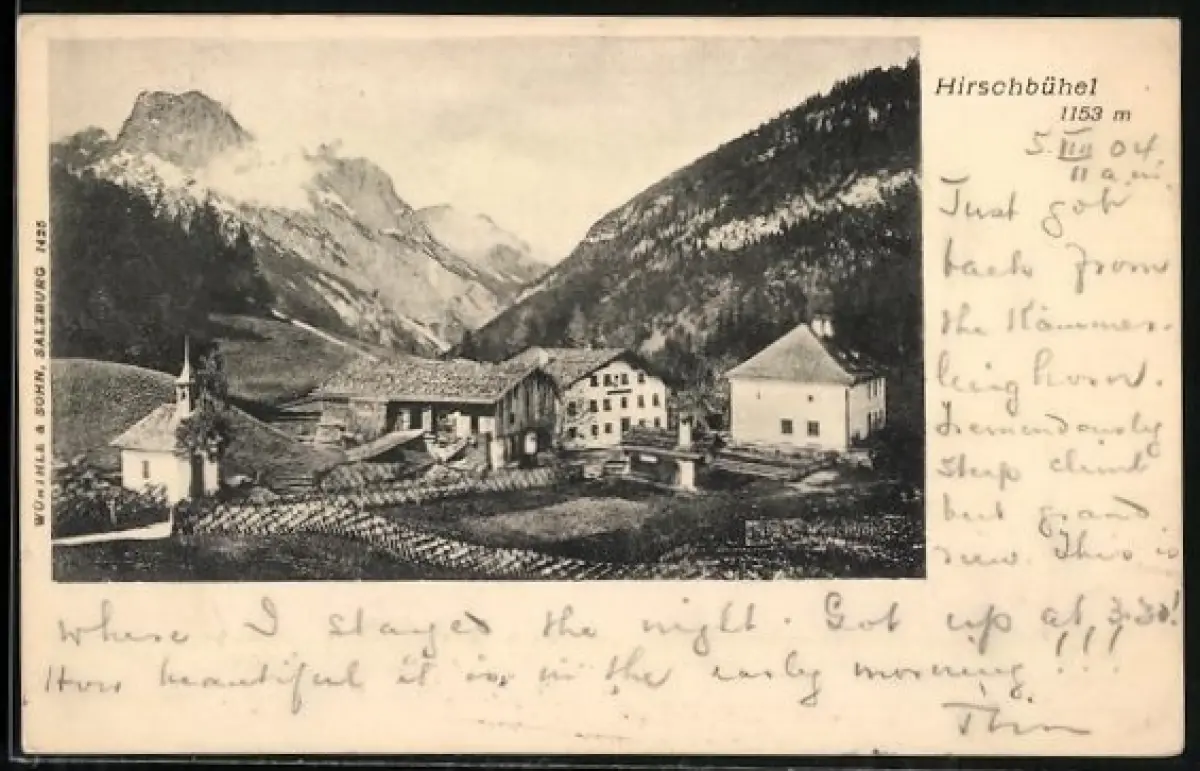 Hirschbühel
1153 m
5. VIII 04.
11 a.m.
Just got
back from
the Kammer-
linghorn.
Tremendously
steep climb
but grand
view. This is
where I stayed the night. Got up at 3.30!
How beautiful it is in the early morning!!!
WÜRTHLE & SOHN, SALZBURG 1425